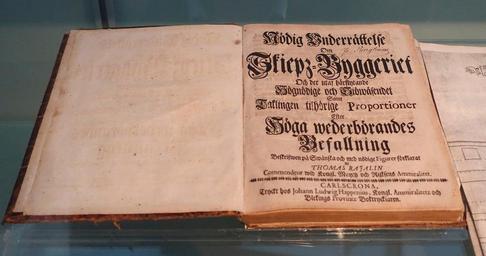 Nödig Underrättelse
Om
Skiepz-Byggeriet
Och der utaf härflytande
Högnödige och
Samt
Taklingen tilhörige Proportioner
Efter
Höga wederbörandes
Befallning
Beskrifwen på Swänska och med nödige Figurer förklarat
af
THOMAS RAJALIN
Commendeur wid Kongl. Mayst och Rijksens Ammiralitet.
CARLSCRONA,
Tryckt hos Johann Ludwig Happenius, Kongl. Ammiralitets och
Blekings Provintz Boktryckiaren.